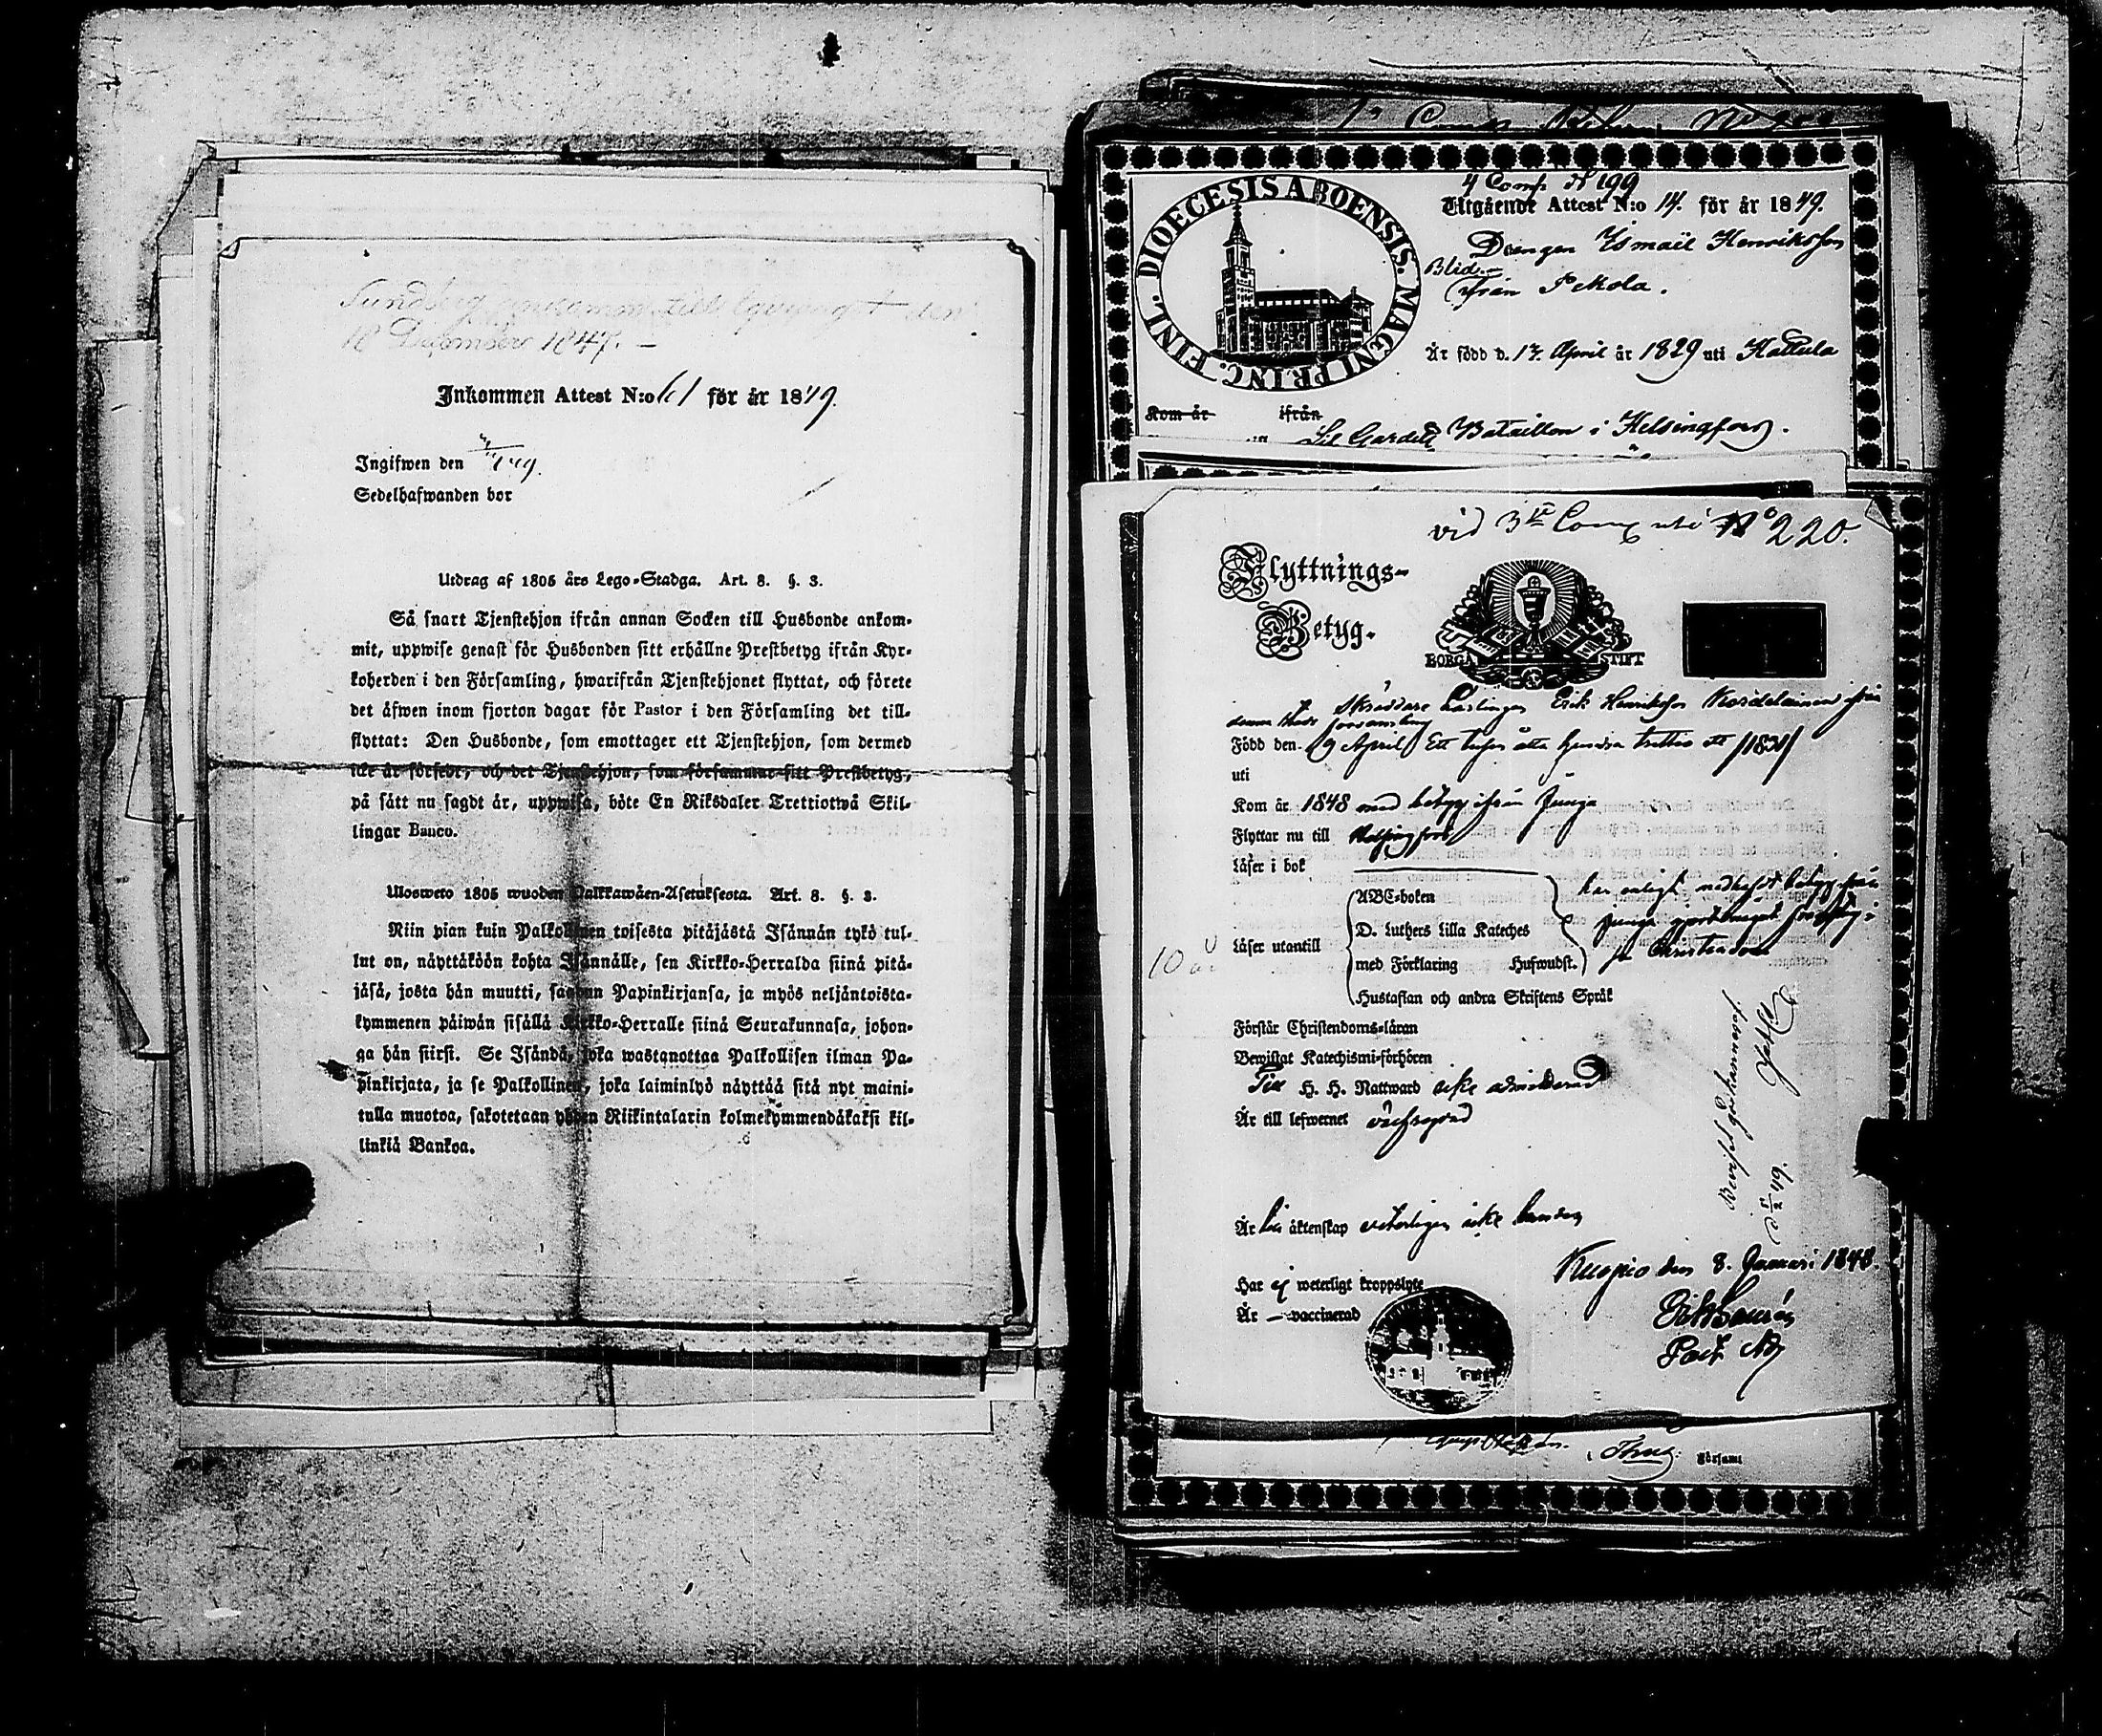 18 December 1847. —
Inkommen Attest N:o 61 för år 1849.
Ingifwen den
Sedelhafwanden bor
Utdrag af 1805 års Lego-Stadga. Art. 8. §. 3.
Så snart Tjenstehjon ifrån annan Socken till Husbonde ankom-
mit, uppwise genast för Husbonden sitt erhållne Prestbetyg ifrån Kyr-
koherden i den Församling, hwarifrån Tjenstehjonet flyttat, och förete
det äfwen inom fjorton dagar för Pastor i den Församling det till-
flyttat: Den Husbonde, som emottager ett Tjenstehjon, som dermed
icke är försedt, och det Tjenstehjon, som försummar sitt Prestbetyg,
på sätt nu sagdt är, uppwisa, böte En Riksdaler Trettiotwå Skil-
lingar Banco.
Ulosweto 1805 wuoden Palkkawäen-Asetuksesta. Art. 8. §. 3.
Niin pian kuin Palkollinen toisesta pitäjästä Isännän tykö tul-
lut on, näyttäköön kohta Isännälle, sen Kirkko-Herralda siinä pitä-
jäsä, josta hän muutti, saadun Papinkirjansa, ja myös neljäntoista-
kymmenen päiwän sisällä Kirkko-Herralle siinä Seurakunnasa, johon-
ga hän siirsi. Se Isändä, joka wastanottaa Palkollisen ilman Pa-
pinkirjata, ja se Palkollinen, joka laiminlyö näyttää sitä nyt maini-
tulla muotoa, sakotetaan yhden Riikintalarin kolmekymmendäkaksi kil-
linkiä Bankoa.
DIOECESIS ABOENSIS. MAGNI PRINC. FINL.
4 Comp. N 199
Utgående Attest N:o 14. för år 1849.
Drengen Ismaël Henriksson
Blid.—
från Pekola.
Är född d. 17. April år 1829 uti Hattula
Kom år ifrån
till Lif Gardets Bataillon i Helsingfors.
vid 3:e Comp uti No 220.
Flyttnings-
Betyg.
BORGÅ STIFT
Skräddare Lärlingen Erik Henriksson ifrån
denna Stads församling
Född den 9 April Ett tusen åtta hundra trettio ett /1831/
uti
Kom år 1848 med betyg ifrån Junga
Flyttar nu till Helsingfors
Läser i bok
Läser utantill
ABC-boken
D. Luthers Lilla Kateches
med Förklaring Hufwudst.
Hustaflan och andra Skriftens Språk
har enligt medhafdt betyg från
Junga
Christendom
10 år
Förstår Christendoms-läran
Bewistat Katechismi-förhören
Till H. H. Nattward icke admitterad
Är till lefwernet
Är till äktenskap veterligen icke bunden
Kuopio den 8. Januari 1848.
Har ej weterligt kroppslyte
Är — vaccinerad
Församl